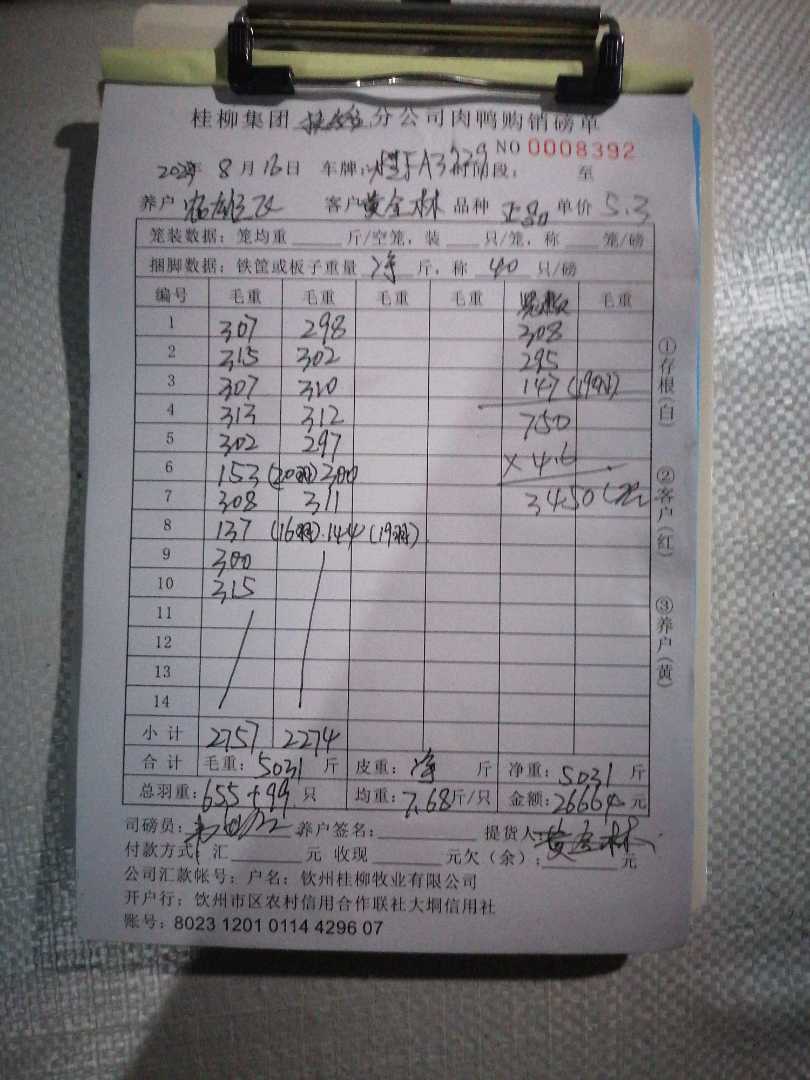 桂柳集团 分公司肉鸭购销磅单
NO 0008392
8月16日 车牌: A3 时间段: 至
养户 客户 黄金林 品种 单价 5.3
笼装数据: 笼均重 斤/空笼, 装 只/笼, 称 笼/磅
捆脚数据: 铁筐或板子重量 净 斤, 称 40 只/磅
编号 毛重 毛重 毛重 毛重 毛重
1 307 298 308
2 315 302 295
3 307 310 147(19羽)
4 313 312 750
5 302 297
6 153(20羽) 300 ×4.6
7 308 311 3450
8 137(16羽) 144(19羽)
9 300
10 315
11
12
13
14
小计 2757 2274
合计 毛重: 5031 斤 皮重: 净 斤 净重: 5031 斤
总羽重: 655+99 只 均重: 7.68斤/只 金额: 26664元
司磅员: 养户签名: 提货人: 黄金林
付款方式: 汇 元 收现 元欠(余): 元
公司汇款帐号: 户名: 钦州桂柳牧业有限公司
开户行: 钦州市区农村信用合作联社大垌信用社
账号: 8023 1201 0114 4296 07
①存根(白) ②客户(红) ③养户(黄)